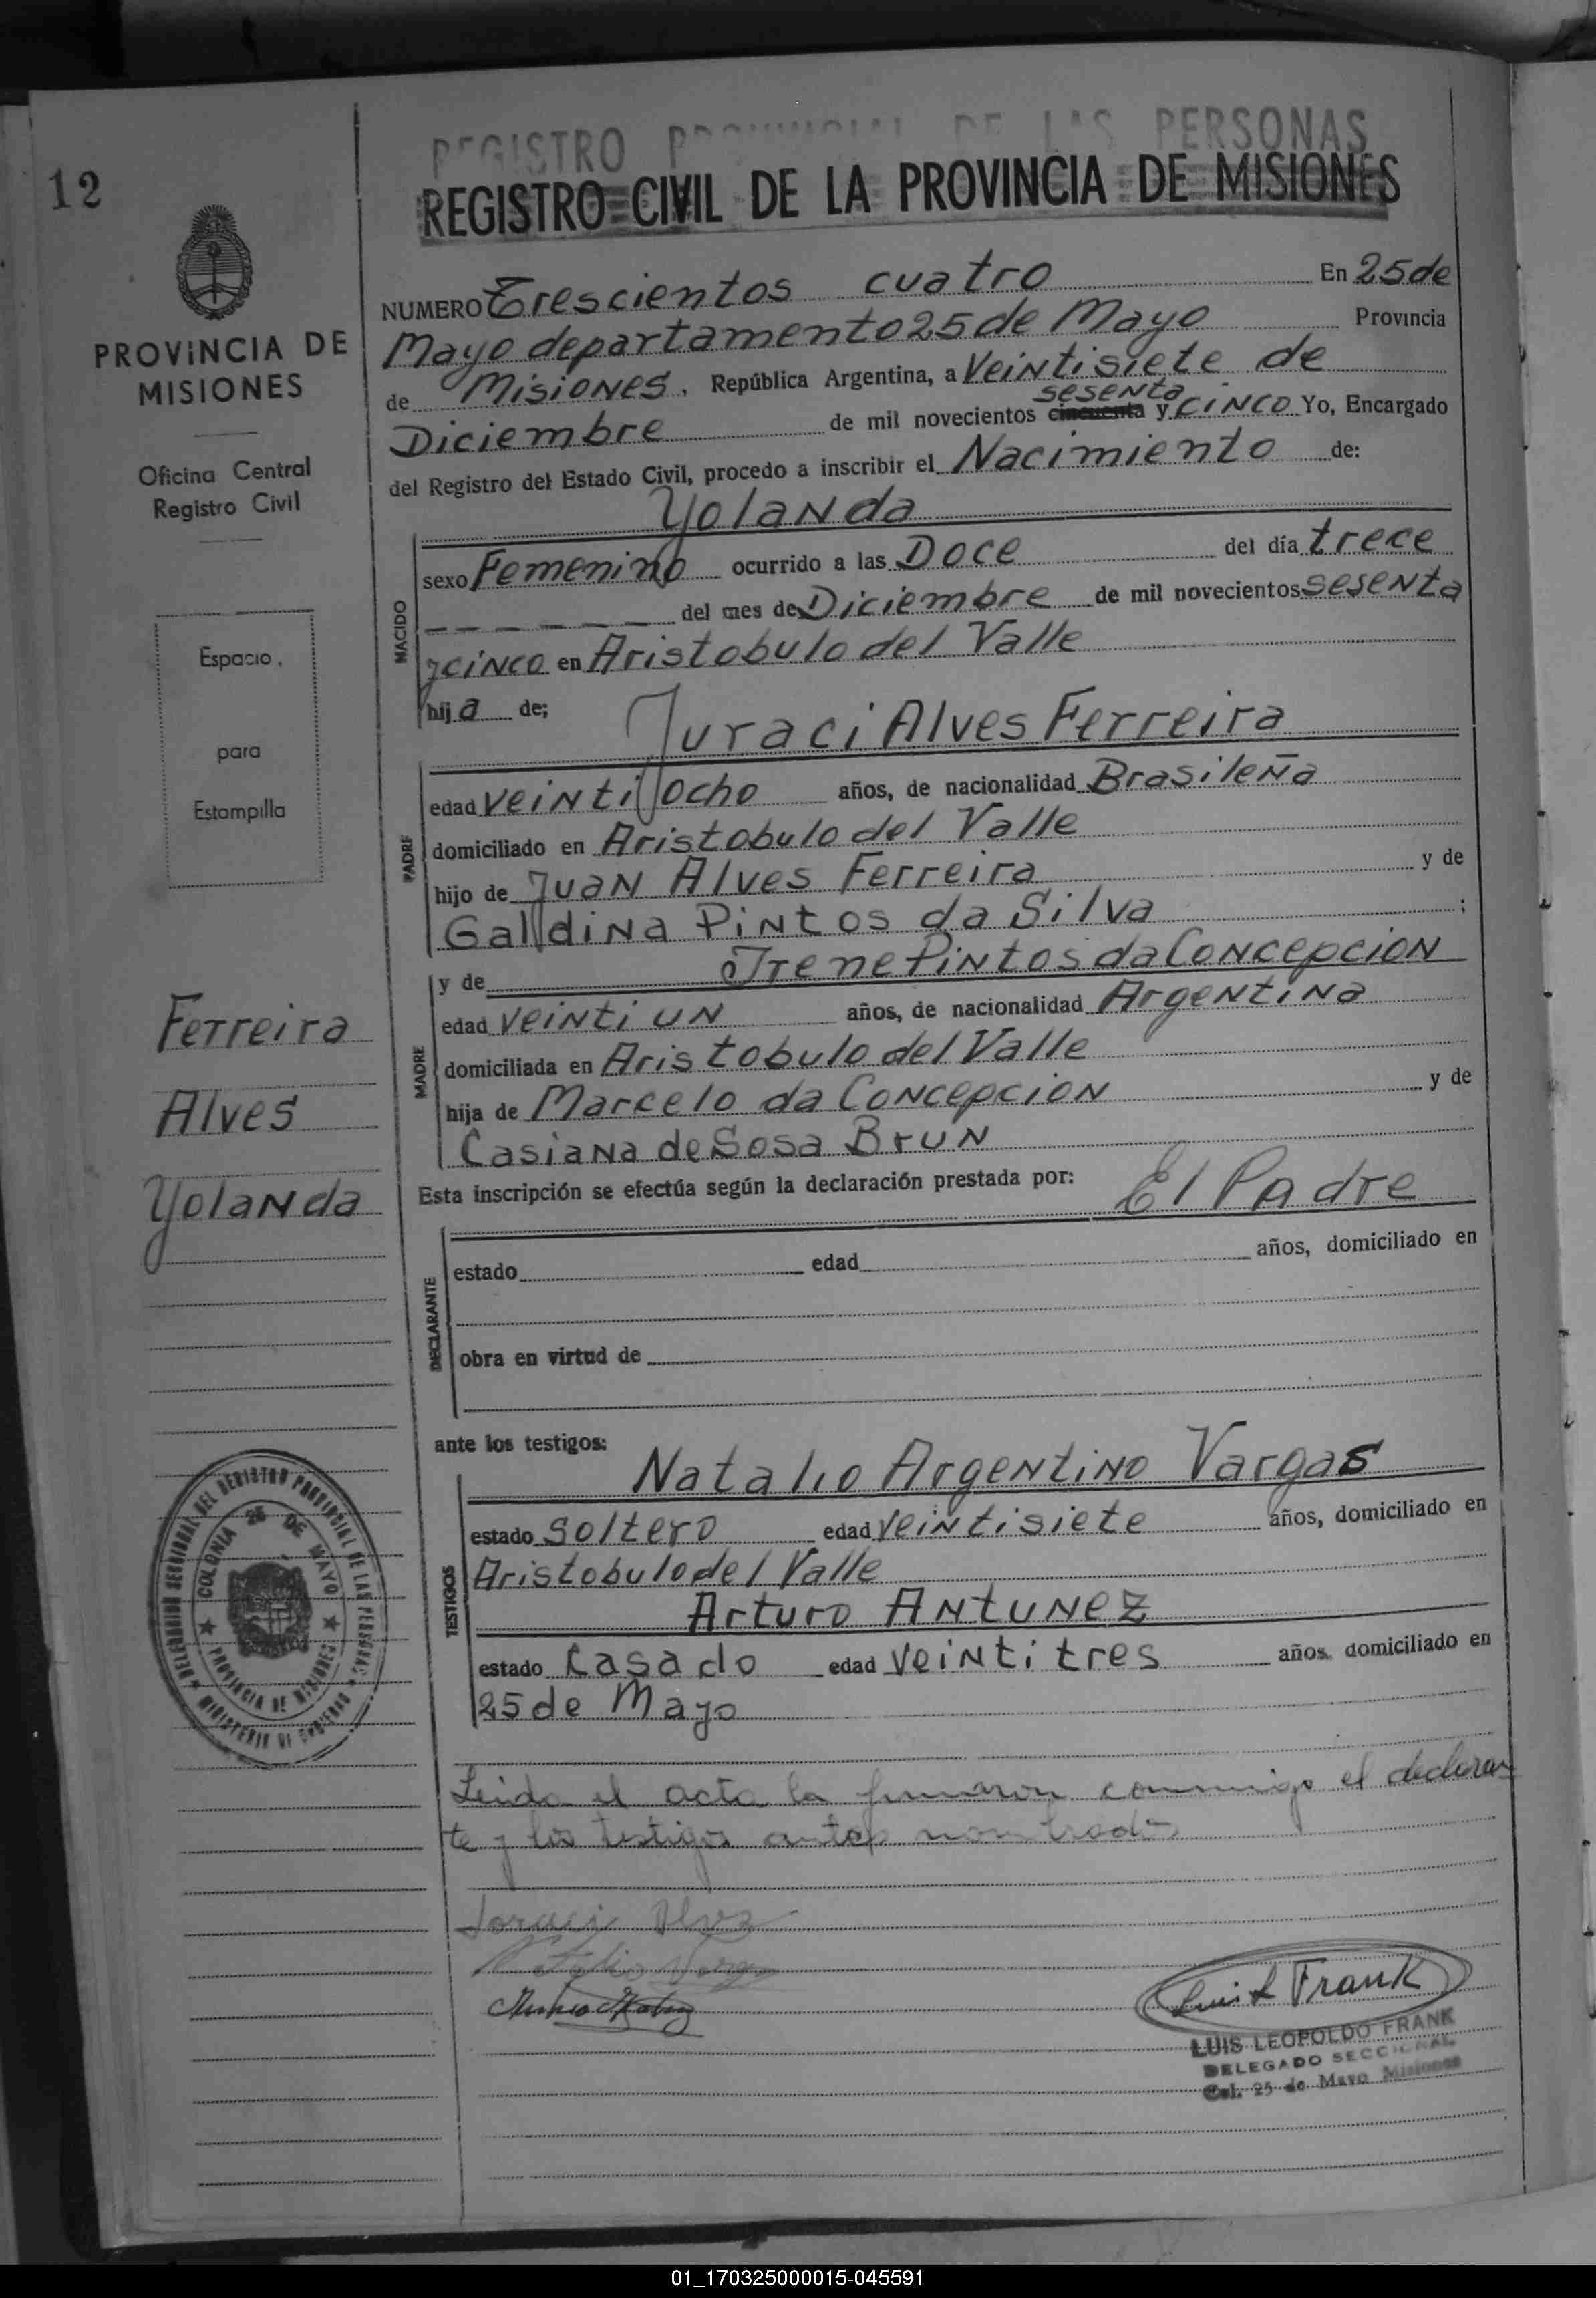 12
REGISTRO PROVINCIAL DE LAS PERSONAS
REGISTRO CIVIL DE LA PROVINCIA DE MISIONES
PROVINCIA DE
MISIONES
Oficina Central
Registro Civil
Espacio
para
Estampilla
Ferreira
Alves
Yolanda
NUMERO Trescientos cuatro En 25 de
Mayo departamento 25 de Mayo Provincia
de Misiones, República Argentina, a Veintisiete de
sesenta
Diciembre de mil novecientos cincuenta y cinco Yo, Encargado
del Registro del Estado Civil, procedo a inscribir el Nacimiento de:
Yolanda
NACIDO
sexo Femenino ocurrido a las Doce del día trece
del mes de Diciembre de mil novecientos sesenta
y cinco en Aristobulo del Valle
hija de;
Juraci Alves Ferreira
PADRE
edad veintiocho años, de nacionalidad Brasileña
domiciliado en Aristobulo del Valle
hijo de Juan Alves Ferreira y de
Galdina Pintos da Silva ;
y de Irene Pintos da Concepcion
MADRE
edad veintiun años, de nacionalidad Argentina
domiciliada en Aristobulo del Valle
hija de Marcelo da Concepcion y de
Casiana de Sosa Brun
Esta inscripción se efectúa según la declaración prestada por: El Padre
DECLARANTE
estado edad años, domiciliado en
obra en virtud de
ante los testigos:
Natalio Argentino Vargas
TESTIGOS
estado soltero edad veintisiete años, domiciliado en
Aristobulo del Valle
Arturo Antunez
estado Casado edad veintitres años, domiciliado en
25 de Mayo
Leida el acta la firmaron conmigo el declaran
te y los testigos antes nombrados
DELEGACION SECCIONAL DEL REGISTRO PROVINCIAL DE LAS PERSONAS
MINISTERIO DE GOBIERNO
COLONIA 25 DE MAYO
PROVINCIA DE MISIONES
Luis L Frank
LUIS LEOPOLDO FRANK
DELEGADO SECCIONAL
Col. 25 de Mayo Misiones
01_170325000015-045591